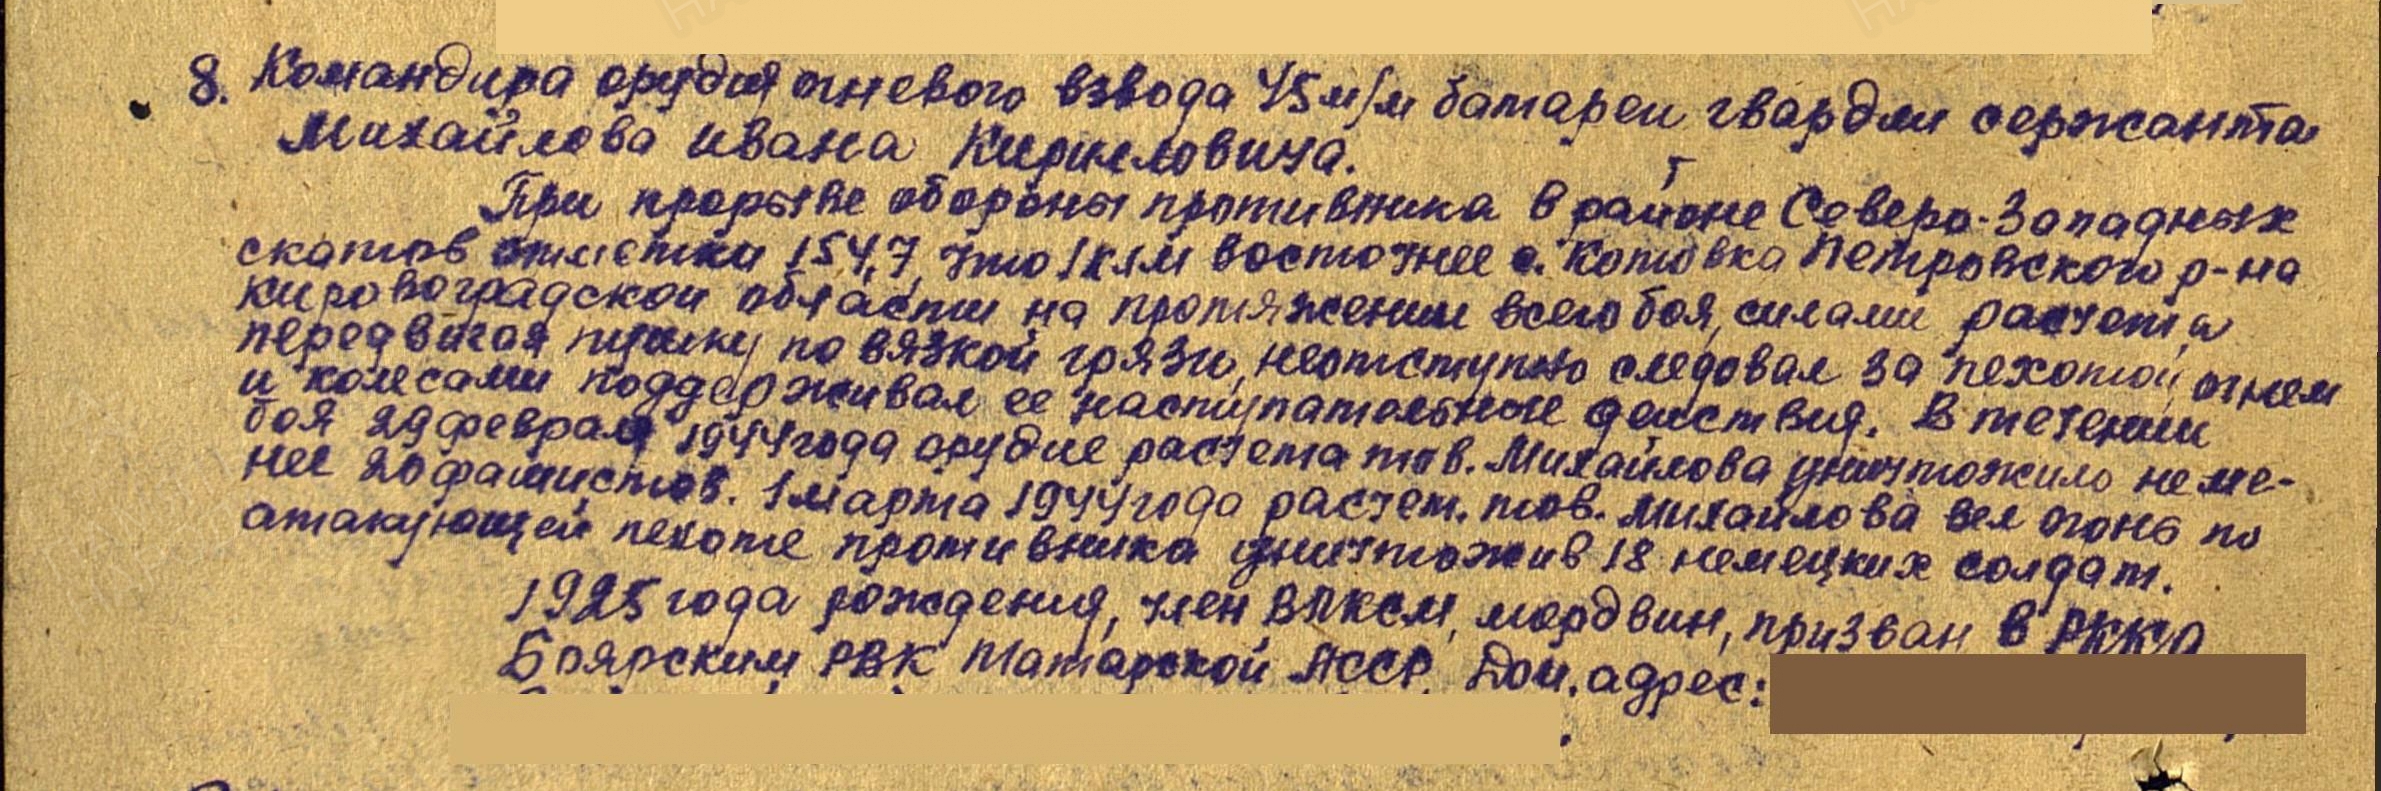 8. Командира орудия огневого взвода 45 м/м батареи гвардии сержанта
Михайлова Ивана Кирилловича.
При прорыве обороны противника в районе Северо-Западных
скатов отметки 154,7, что 1 клм восточнее с. Котовка Петровского р-на
Кировоградской области на протяжении всего боя, силами расчета
передвигая пушку по вязкой грязи, неотступно следовал за пехотой, огнем
и колесами поддерживал ее наступательные действия. В течении
боя 29 февраля 1944 года орудие расчета тов. Михайлова уничтожило не ме-
нее 20 фашистов. 1 марта 1944 года расчет. тов. Михайлова вел огонь по
атакующей пехоте противника уничтожив 18 немецких солдат.
1925 года рождения, член ВЛКСМ, мордвин, призван в РККА
Боярским РВК Татарской АССР. Дом. адрес: